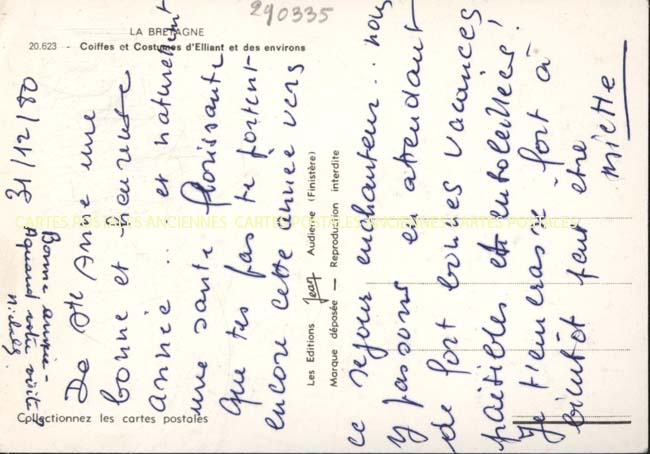 290335
LA BRETAGNE
20.623 - Coiffes et Costumes d'Elliant et des environs
31/12/80
De Ste Anne une
bonne et heureuse
année .. et naturellement
une santé florissante
Que tes pas te portent
encore cette année vers
ce séjour enchanteur.. nous
y passons en attendant
de fort bonnes vacances
paisibles et ensoleillées!
Je t'embrasse fort à
bientôt peut être
Miette
Bonne année -
A quand votre visite
Les Editions Jean Audierne (Finistère)
Marque déposée — Reproduction interdite
Collectionnez les cartes postales
CARTES POSTALES ANCIENNES CARTES POSTALES ANCIENNES CARTES POSTALES